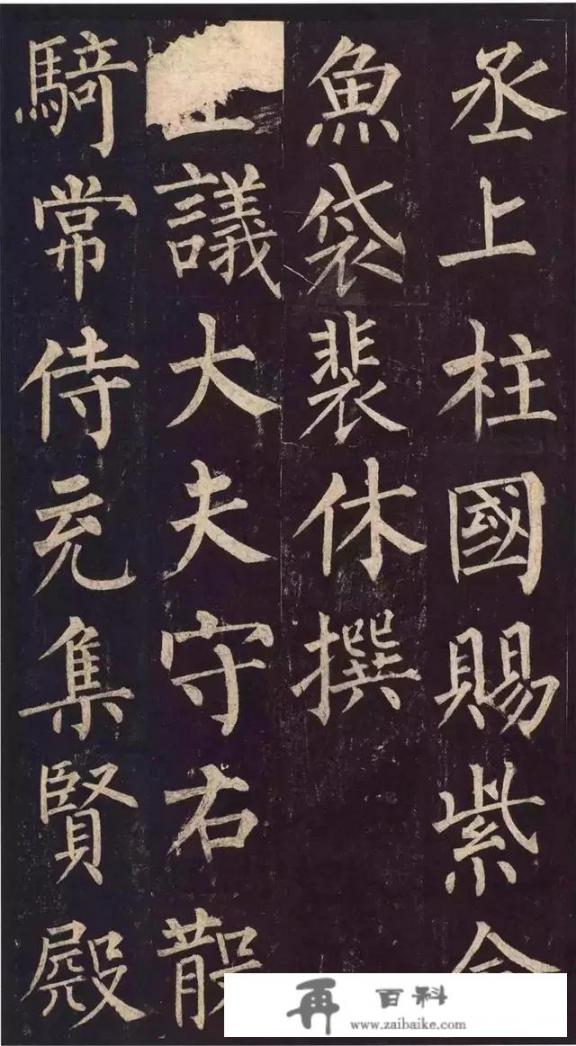 丞上柱國賜紫金
魚袋裴休撰
議大夫守右散
騎常侍充集賢殿
再百科
www.zaibaike.com